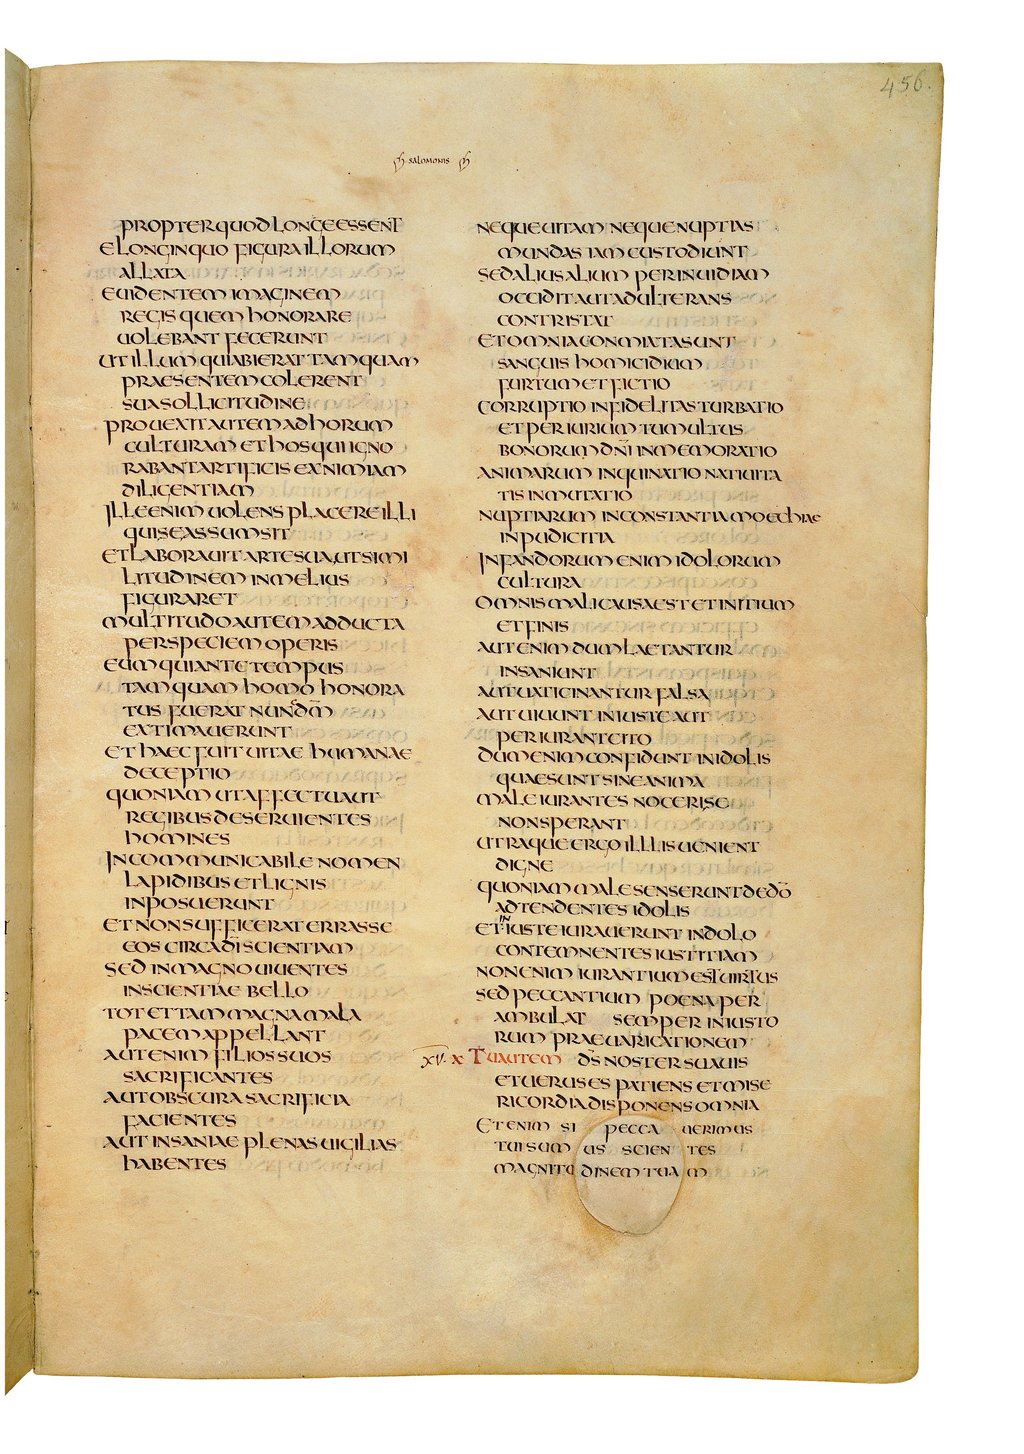 456.
SALOMONIS
PROPTER QUOD LONGE ESSENT
E LONGINQUO FIGURA ILLORUM
ALLATA
EUIDENTEM IMAGINEM
REGIS QUEM HONORARE
UOLEBANT FECERUNT
UT ILLUM QUI ABIERAT TAMQUAM
PRAESENTEM COLERENT
SUA SOLLICITUDINE
PROUEXIT AUTEM AD HORUM
CULTURAM ET HOS QUI IGNO
RABANT ARTIFICIS EXNIMIAM
DILIGENTIAM
ILLE ENIM UOLENS PLACERE ILLI
QUI SE ASSUMSIT
ET LABORAUIT ARTE SUA UT SIMI
LITUDINEM IN MELIUS
FIGURARET
MULTITUDO AUTEM ADDUCTA
PER SPECIEM OPERIS
EUM QUI ANTE TEMPUS
TAMQUAM HOMO HONORA
TUS FUERAT NUNC DM̄
EXTIMAUERUNT
ET HAEC FUIT UITAE HUMANAE
DECEPTIO
QUONIAM UT AFFECTU AUT
REGIBUS DESERUIENTES
HOMINES
INCOMMUNICABILE NOMEN
LAPIDIBUS ET LIGNIS
INPOSUERUNT
ET NON SUFFICERAT ERRASSE
EOS CIRCA DĪ SCIENTIAM
SED IN MAGNO UIUENTES
INSCIENTIAE BELLO
TOT ET TAM MAGNA MALA
PACEM APPELLANT
AUT ENIM FILIOS SUOS
SACRIFICANTES
AUT OBSCURA SACRIFICIA
FACIENTES
AUT INSANIAE PLENAS UIGILIAS
HABENTES
NEQUE UITAM NEQUE NUPTIAS
MUNDAS IAM CUSTODIUNT
SED ALIUS ALIUM PER INUIDIAM
OCCIDIT AUT ADULTERANS
CONTRISTAT
ET OMNIA CONMIXTA SUNT
SANGUIS HOMICIDIUM
FURTUM ET FICTIO
CORRUPTIO INFIDELITAS TURBATIO
ET PERIURIUM TUMULTUS
BONORUM DNI INMEMORATIO
ANIMARUM INQUINATIO NATIUITA
TIS INMUTATIO
NUPTIARUM INCONSTANTIA MOECHIAE
INPUDICITIA
INFANDORUM ENIM IDOLORUM
CULTURA
OMNIS MALI CAUSA EST ET INITIUM
ET FINIS
AUT ENIM DUM LAETANTUR
INSANIUNT
AUT UATICINANTUR FALSA
AUT UIUUNT INIUSTE AUT
PERIURANT CITO
DUM ENIM CONFIDUNT IN IDOLIS
QUAE SUNT SINE ANIMA
MALE IURANTES NOCERI SE
NON SPERANT
UTRAQUE ERGO ILLIS UENIENT
DIGNE
QUONIAM MALE SENSERUNT DE DŌ
ADTENDENTES IDOLIS
ET INIUSTE IURAUERUNT IN DOLO
CONTEMNENTES IUSTITIAM
NON ENIM IURANTIUM EST UIRTUS
SED PECCANTIUM POENA PER
AMBULAT SEMPER INIUSTO
RUM PRAEUARICATIONEM
XV. X TU AUTEM DS̄ NOSTER SUAUIS
ET UERUS ES PATIENS ET MISE
RICORDIA DISPONENS OMNIA
ETENIM SI PECCAUERIMUS
TUI SUMUS SCIENTES
MAGNITUDINEM TUAM